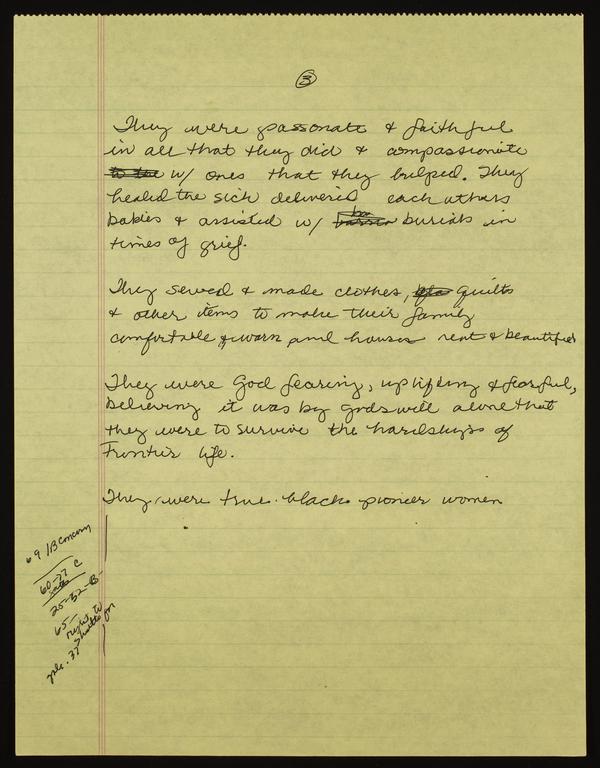 3
They were passonate & faithful
in all that they did & compassionate
w/ ones that they helped. They
healed the sick delivered each others
babies & assisted w/ burials in
times of grief.
They sewed & made clothes, quilts
& other items to make their family
comfortable & warm and houses neat & beautiful
They were God fearing, uplifting & fearful,
believing it was by gods will alone that
they were to survive the hardships of
Frontier life.
They were true black pioneer women
69 /
60-77 C
25-32-B-
65-
right to
37